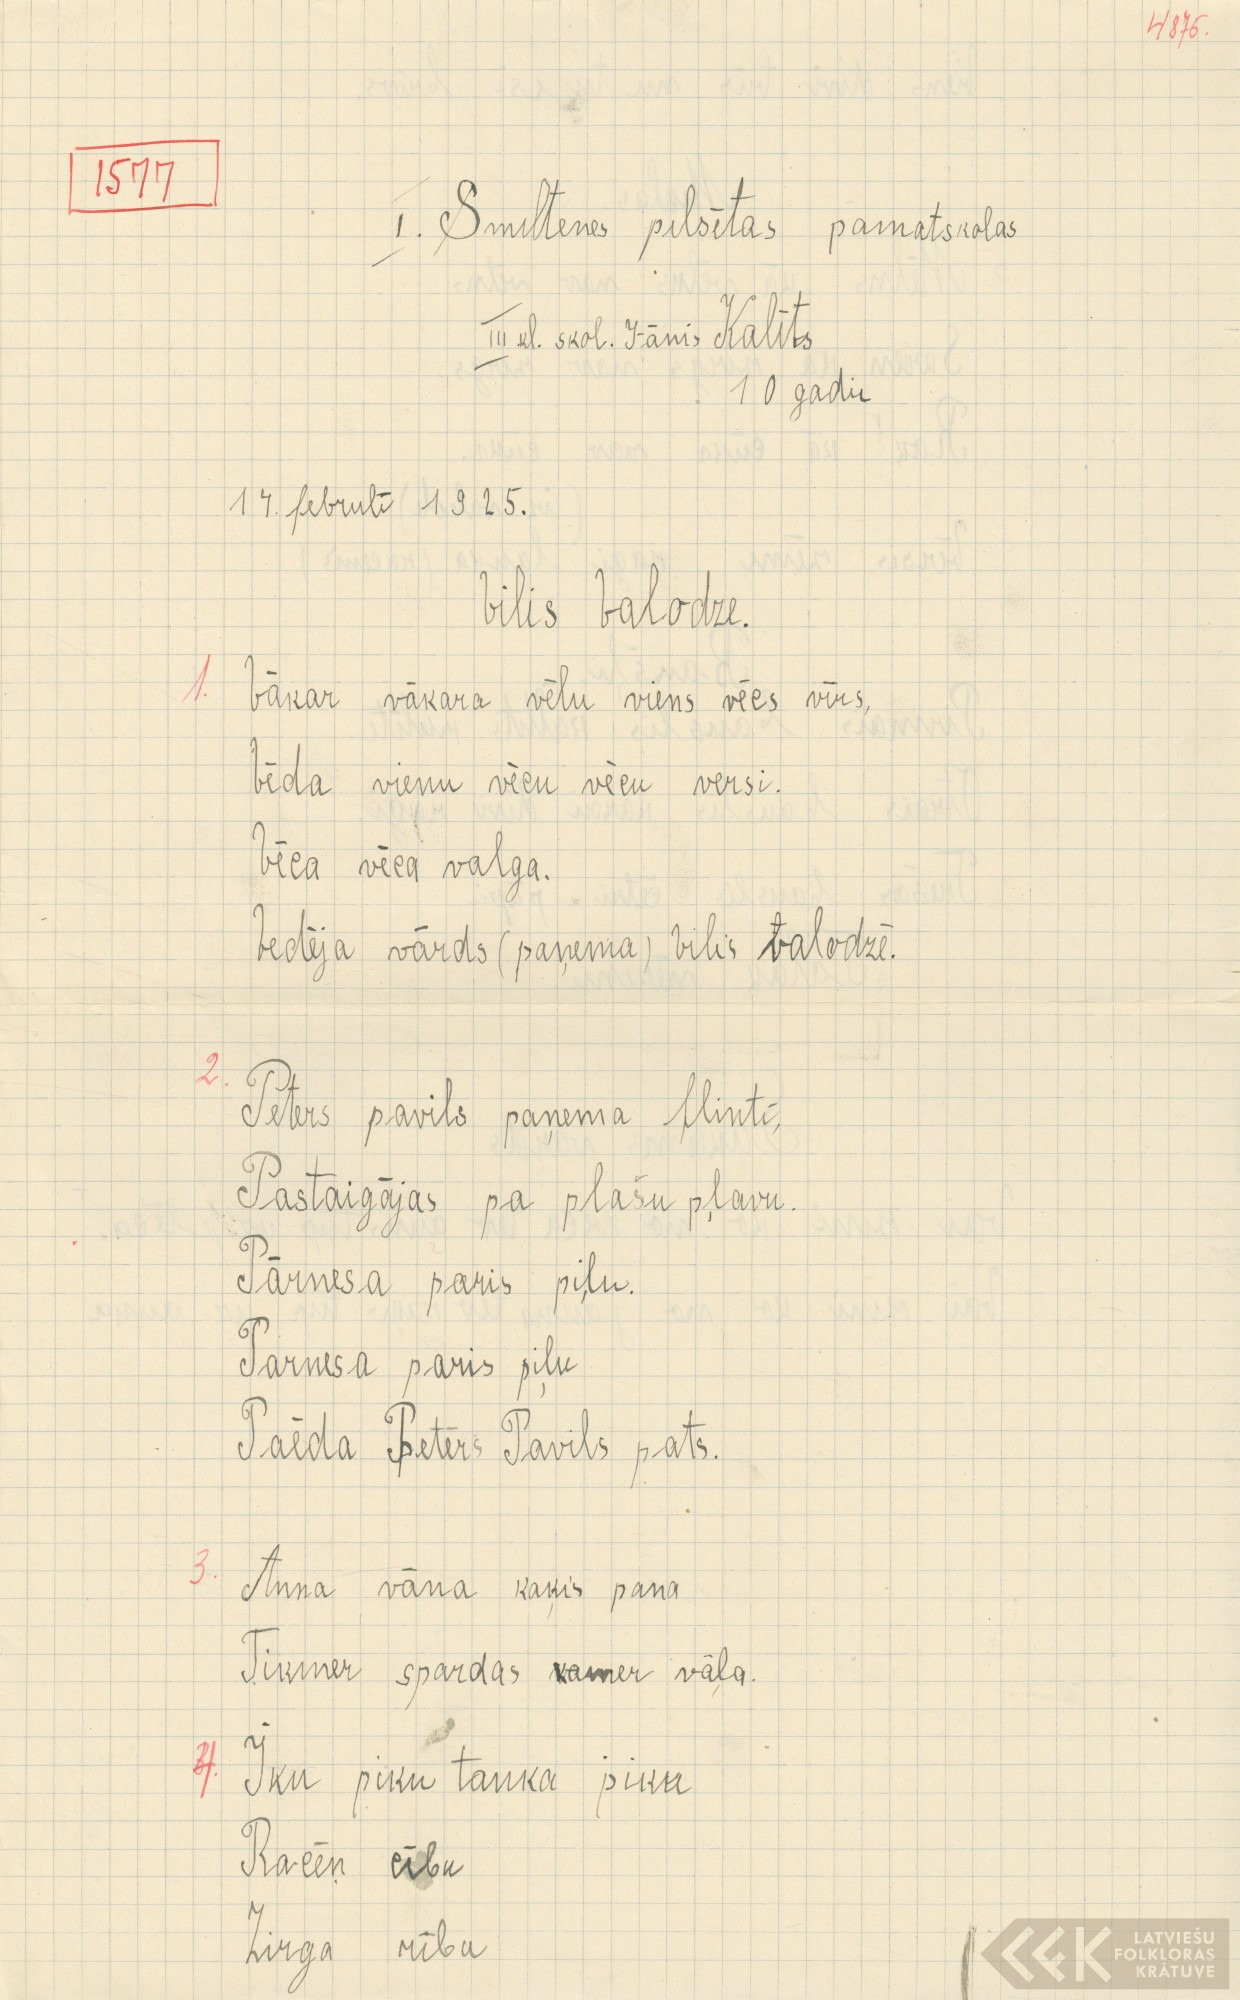 4876.
1577
I. Smiltenes pilsētas pamatskolas
III kl. skol. Jānis Kalīts
10 gadu
17. februtī 1925.
Vilis Valodze.
1. Vākar vākara vēlu viens vēcs vīrs,
Vēda vienu vēcu vēcu versi.
Vēca vēca valga.
Vedēja vārds (paņema) Vilis Valodzē.
2. Peters pavils paņema flinti,
Pastaigājas pa plašu pļavu.
Pārnesa paris piļu.
Parnesa paris piļu
Paēda Peters Pavils pats.
3. Anna vāna kaķis pana
Tikmer spardas kamer vāļa.
4. Iku piku tauka piku
Racēņ cību
Zirga rību
LATVIEŠU
FOLKLORAS
KRĀTUVE